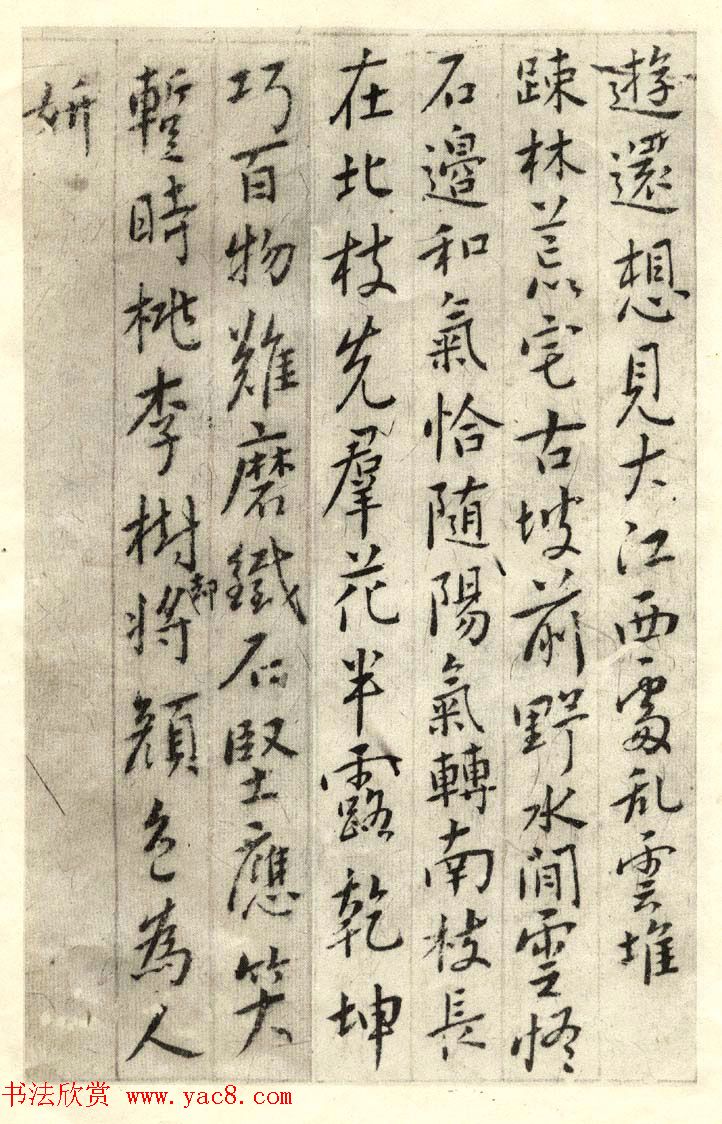 遊還想見大江西處乱雲堆
疎林荒宅古坡前野水閒雲怪
石邊和氣恰随陽氣轉南枝長
在北枝先羣花半露乾坤
巧百物難磨鐵石堅應笑
暫時桃李樹却将顔色為人
妍
书法欣赏 www.yac8.com